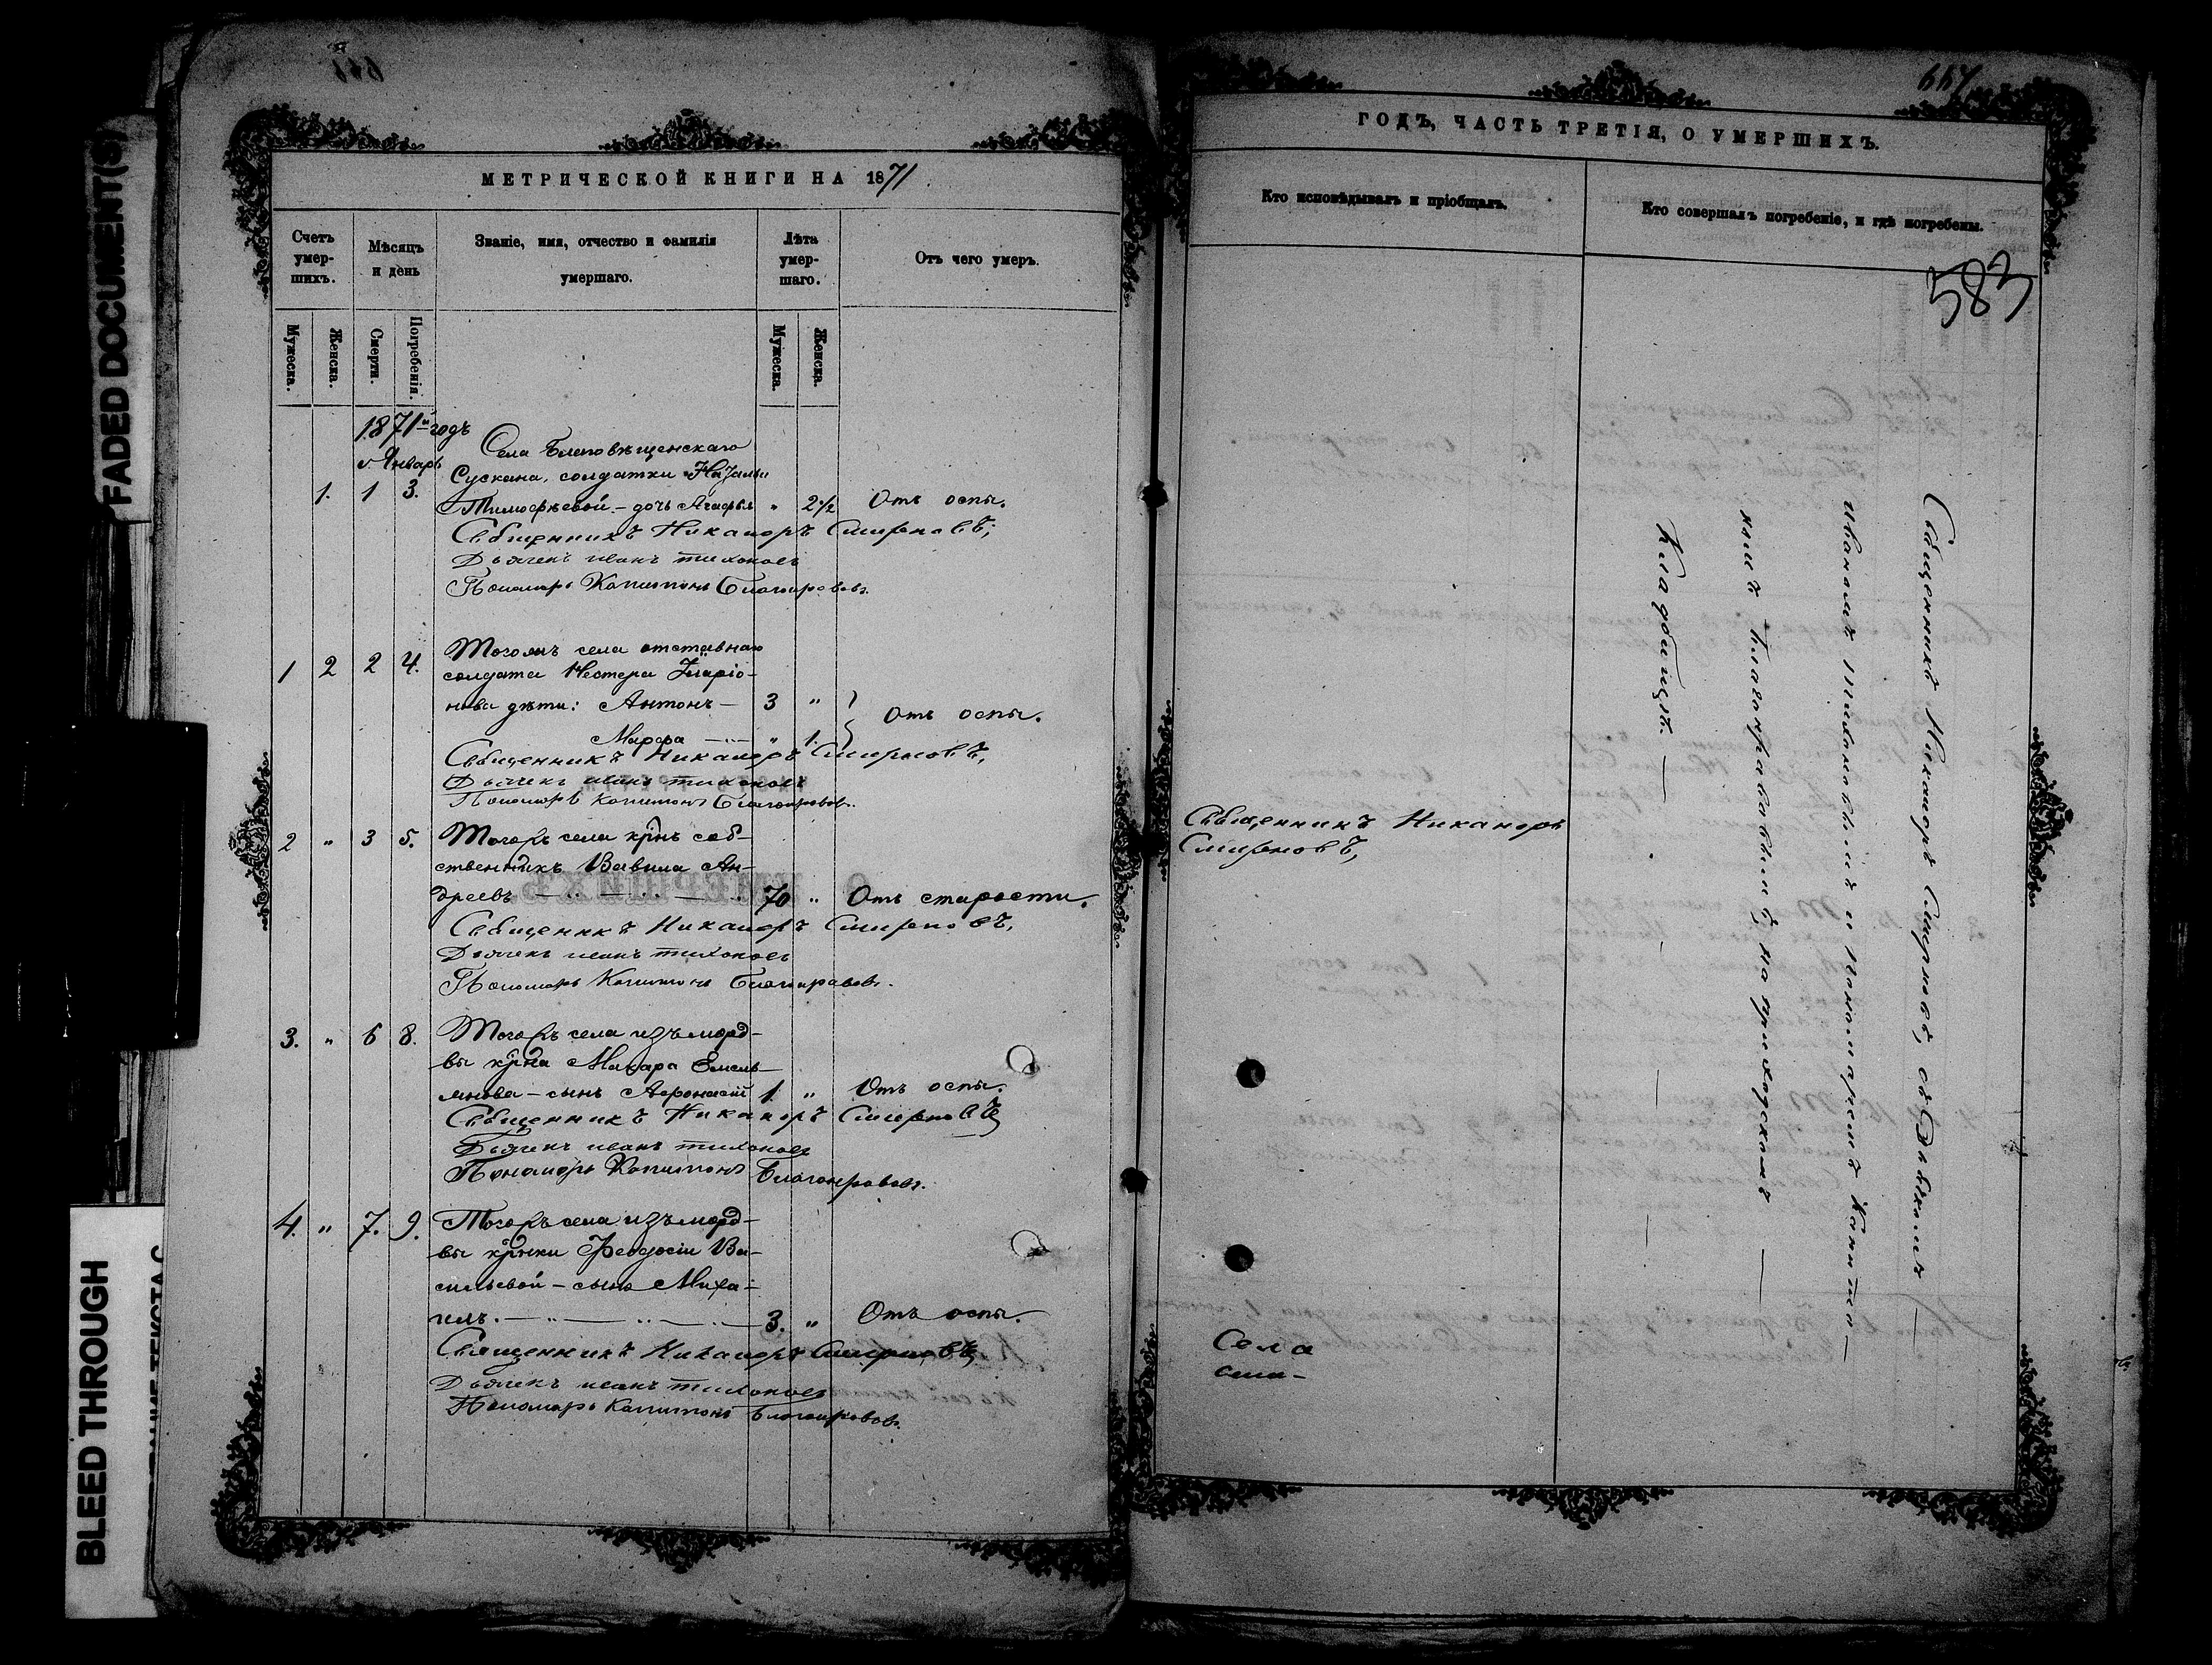 FADED DOCUMENT(S)
BLEED THROUGH
МЕТРИЧЕСКОЙ КНИГИ НА 1871
Счетъ умер-шихъ.
Мѣсяцъ и день
Званіе, имя, отчество и фамилія умершаго.
Лѣта умер-шаго.
Отъ чего умеръ.
Мужеска.
Женска.
Смерти.
Погребенія.
Мужеска.
Женска.
1871й годъ
Январь
Села Благовѣщенскаго
Сускана, солдатки
1. 1 3. Тимофѣевой – дочь Агафья " 2½ Отъ оспы.
Священникъ Никаноръ Смирновъ,
Дьячекъ иванъ тихоновъ
Пономарь Капитонъ Благонравовъ.
1 2 2 4. Тогожъ села отставнаго
солдата Нестера Иларіо-
нова дѣти: Антонъ – 3 "
Марфа – " 1. Отъ оспы.
Священникъ Никаноръ Смирновъ,
Дьячекъ иванъ тихоновъ
Пономарь Капитонъ Благонравовъ.
2 " 3 5. Тогожъ села крнъ соб-
ственникъ Вавила Ан-
дреевъ – 70 " Отъ старости.
Священникъ Никаноръ Смирновъ,
Дьячекъ иванъ тихоновъ
Пономарь Капитонъ Благонравовъ.
3. " 6 8. Тогожъ села изъ морд-
вы крна Макара Емель-
янова – сынъ Афонасій 1. " Отъ оспы.
Священникъ Никаноръ Смирновъ
Дьячекъ иванъ тихоновъ
Пономарь Капитонъ Благонравовъ.
4. " 7. 9. Тогожъ села изъ морд-
вы крнки Феодосіи Ва-
сильевой – сынъ Миха-
илъ. – 3. " Отъ оспы.
Священникъ Никаноръ Смирновъ
Дьячекъ иванъ тихоновъ
Пономарь Капитонъ Благонравовъ.
ГОДЪ, ЧАСТЬ ТРЕТІЯ, О УМЕРШИХЪ.
Кто исповѣдывалъ и пріобщалъ.
Кто совершалъ погребеніе, и гдѣ погребены.
583
Священникъ Никаноръ
Смирновъ,
Села
Священникъ Никаноръ Смирновъ, съ Дьячкомъ –
Иваномъ Тихоновымъ и Пономаремъ Капито-
номъ Благонравовымъ, на приходскомъ –
Кладбищѣ. –